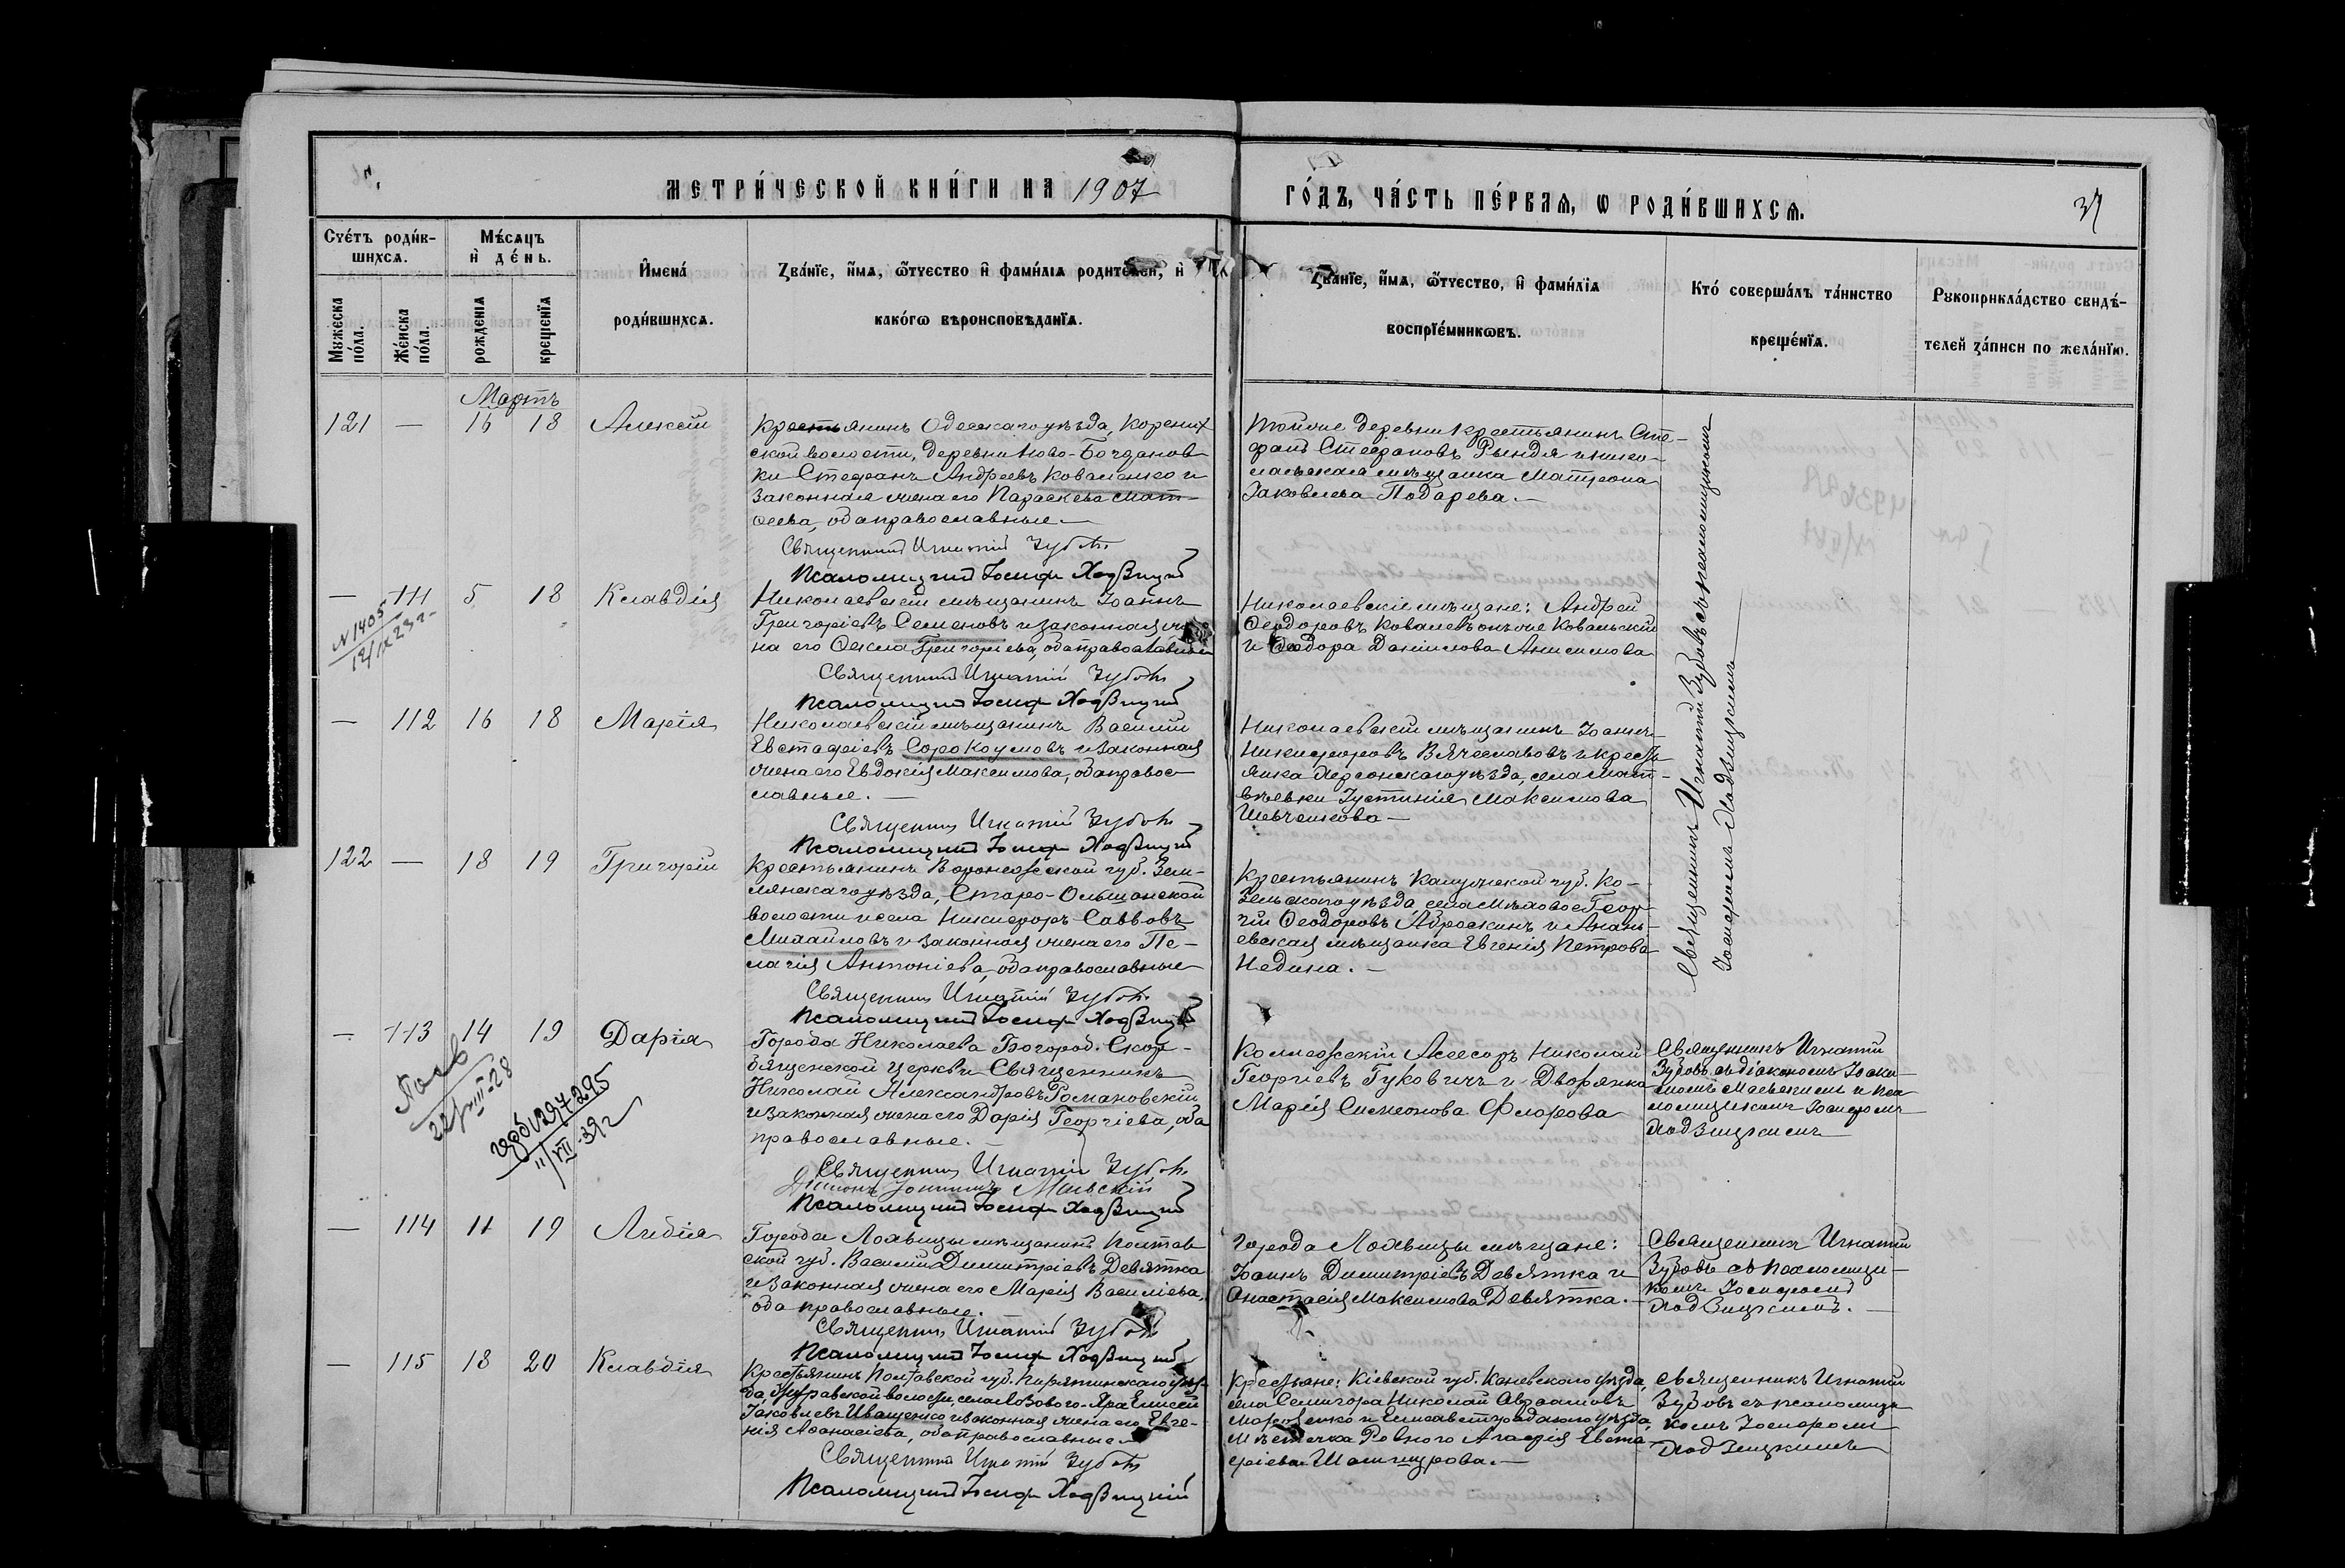 МЕТРИ́ЧЕСКОЙ КНИ́ГИ НА 1907
ГО́ДЪ, ЧА́СТЬ ПЕ́РВАЯ, Ѡ РОДИ́ВШИХСѦ.
37
Сче́тъ роди́в-
шихсѧ.
Мѣ́сѧцъ
и҆ де́нь.
Мꙋжеска по́ла.
Же́нска по́ла.
рожденїѧ
крещенїѧ
И҆мена́
роди́вшихсѧ.
Зва́нїе, и҆́мѧ, ѻ҆́тчество и҆ фамѝлїѧ родителей, и҆
како́гѡ вѣроисповѣданїѧ.
Зва́нїе, и҆́мѧ, ѻ҆́тчество, и҆ фамѝлїѧ
воспрїе́мникѡвъ.
Кто́ соверша́лъ та́инство
креще́нїѧ.
Рꙋкоприкла́дство свидѣ́-
телей за́писи по жела́нїю.
Мартъ
121 — 16 18 Алексій
Крестьянинъ Одесскаго уѣзда,
ской волости, деревни Ново-Богданов-
ки Стефанъ Андреевъ Коваленко и
законная жена его Параскева Мат-
ѳеева, оба православные.—
Священникъ Игнатій Зубовъ
Псаломщикъ Іосифъ Ходзицкій
Тойже деревни крестьянинъ Сте-
фанъ Стефановъ Рындя и нико-
лаевская мѣщанка Матрона
ІаковлеваПодарева.—
Священникъ Игнатій Зубовъ съ псаломщикомъ
Іосифомъ Ходзицкимъ
— 111 5 18 Клавдія
N 1405
12/IX 23 г.
Николаевскій мѣщанинъ Іоаннъ
Григоріевъ Семеновъ и законная же-
на его Ѳекла Григоріева, оба православные
Священникъ Игнатій Зубовъ
Псаломщикъ Іосифъ Ходзицкій
Николаевскіе мѣщане: Андрей
Ѳеодоровъ Ковалевъ онъ же Ковальскій
и Ѳеодора Даніилова Анисимова
— 112 16 18 Марія
Николаевскій мѣщанинъ Василій
Евстафіевъ Сорокоумовъ и законная
жена его Евдокія Максимова, оба правос-
лавные.—
Священникъ Игнатій Зубовъ
Псаломщикъ Іосифъ Ходзицкій
Николаевскій мѣщанинъ Іоаннъ
Никифоровъ Вячеславовъ и кресть-
янка Херсонскаго уѣзда, села Мат-
вѣевки Іустинія Максимова
Шевченкова—
122 — 18 19 Григорій
Крестьянинъ Воронежской губ. Зем-
лянскаго уѣзда, Старо-Ольшанской
волости и села Никифоръ Саввовъ
Михайловъ и законная жена его Пе-
лагія Антоніева, оба православные
Священникъ Игнатій Зубовъ
Псаломщикъ Іосифъ Ходзицкій
Крестьянинъ Калужской губ. Ко-
зельскаго уѣзда села Мѣховое Геор-
гій Ѳеодоровъ Аброскинъ и Анань-
евская мѣщанка Евгенія Петрова
Недина.—
— 113 14 19 Дарія
22/VIII-28
297295
11/VII-39г
Города Николаева Богород. Скор-
бященской церкви Священникъ
Николай Александровъ Романовскій
и законная жена его Дарія Георгіева, оба
православные.—
Священникъ Игнатій Зубовъ
Діаконъ Іоакимъ Маевскій
Псаломщикъ Іосифъ Ходзицкій
Коллежскій Асессоръ Николай
Георгіевъ Гуковичъ и Дворянка
Марія Симеонова Флорова
Священникъ Игнатій
Зубовъ съ діакономъ Іоаки-
момъ Маевскимъ и пса-
ломщикомъ Іосифомъ
Ходзицкимъ
— 114 11 19 Лидія
Города Лохвицы мѣщанинъ Полтав-
ской губ. Василій Димитріевъ Девятка
и законная жена его Марія Василіева,
оба православные.
Священникъ Игнатій Зубовъ
Псаломщикъ Іосифъ Ходзицкій
Города Лохвицы мѣщане:
Іоаннъ Димитріевъ Девятка и
Анастасія Максимова Девятка.—
Священникъ Игнатій
Зубовъ съ псаломщи-
комъ Іосифомъ
Ходзицкимъ.—
— 115 18 20 Клавдія
Крестьянинъ Полтавской губ. Пирятинскаго уѣз-
да, волости, села Лозового-Яра Елисей
Іаковлевъ Иващенко и законная жена его Евге-
нія Аѳанасіева, оба православные—
Священникъ Игнатій Зубовъ
Псаломщикъ Іосифъ Ходзицкій
Крестьяне: Кіевской губ. Каневскаго уѣзда,
села Семигора Николай Авраамовъ
и Елисаветградскаго уѣзда,
мѣстечка Ровного Агафія Евста-
фіева
Священникъ Игнатій
Зубовъ съ псаломщи-
комъ Іосифомъ
Ходзицкимъ